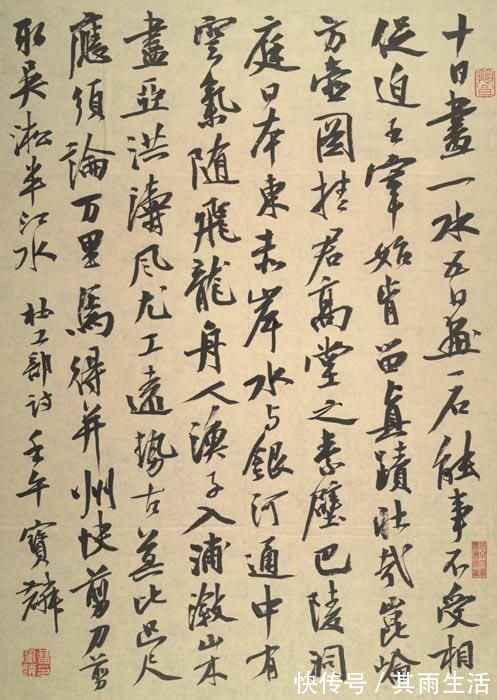 十日畫一水五日畫一石能事不受相
促迫王宰始肯留真蹟壯哉崑崙
方壺圖挂君高堂之素壁巴陵洞
庭日本東赤岸水与銀河通中有
雲氣随飛龍舟人漁子入浦漵山木
盡亞洪濤風尤工遠勢古莫比咫尺
應須論万里焉得并州快剪刀剪
取吳淞半江水 杜工部詩 壬午 寶麟
快传号／其雨生活